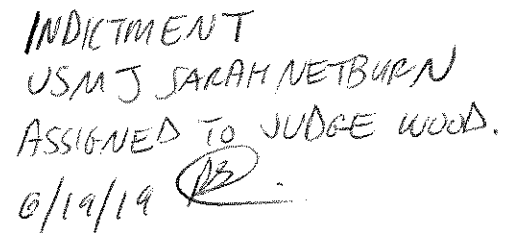 INDICTMENT
USMJ SARAH NETBURN
ASSIGNED TO JUDGE WOOD.
6/19/19